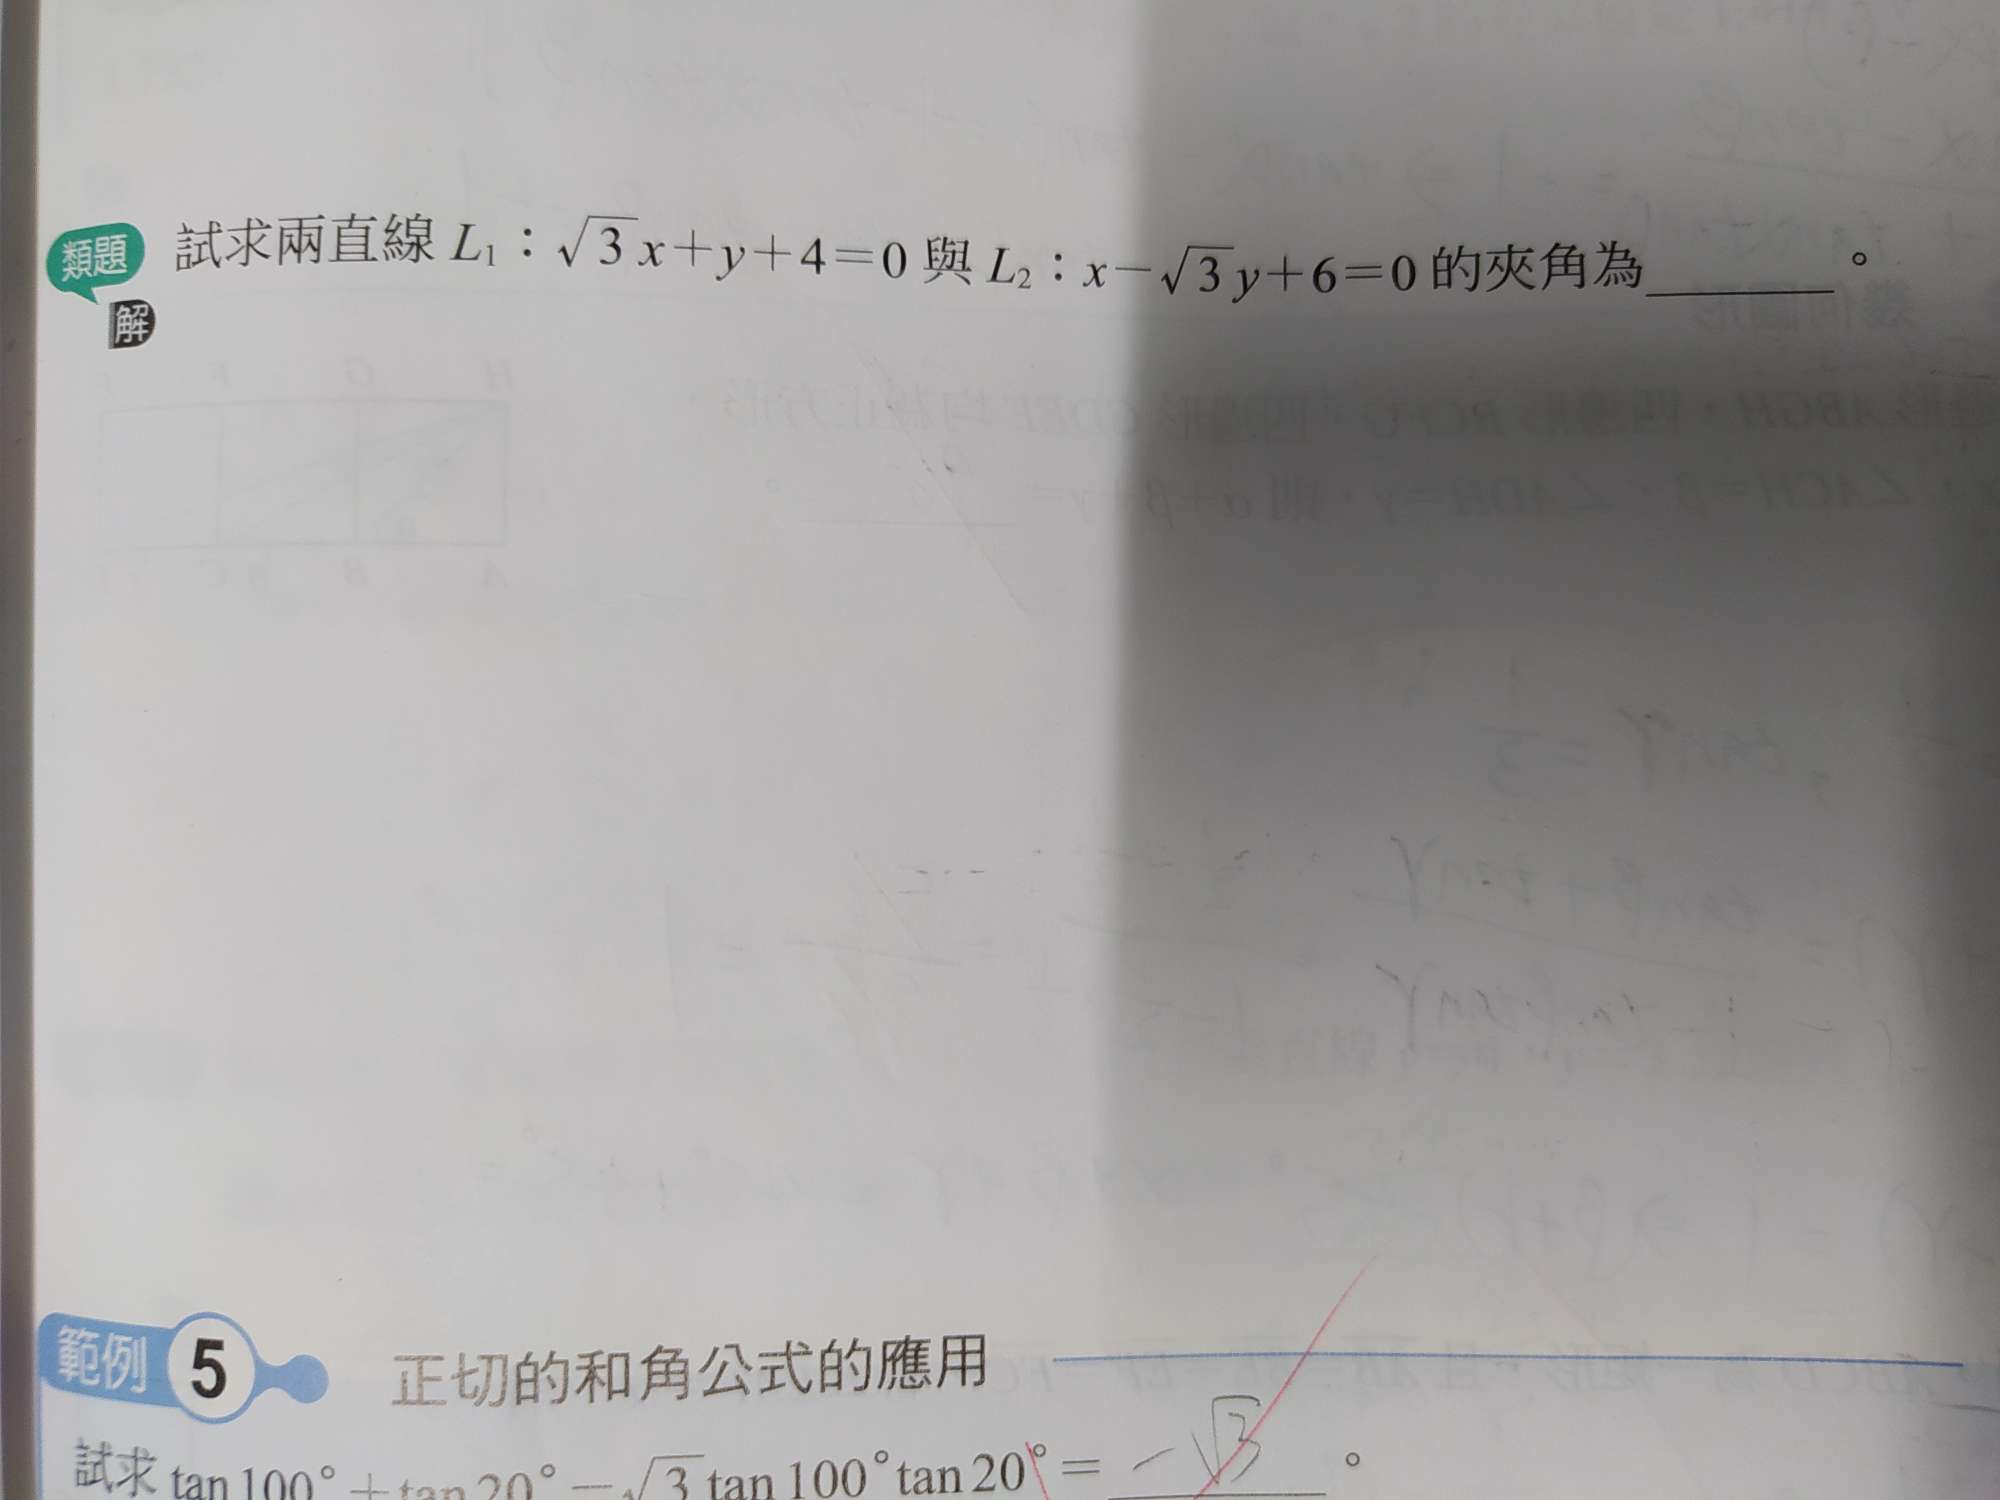 類題 試求兩直線 L₁：√3x＋y＋4＝0 與 L₂：x－√3y＋6＝0 的夾角為＿＿＿＿。
解
範例 5 正切的和角公式的應用
試求 tan100°＋tan20°－√3tan100°tan20°＝ －√3 。